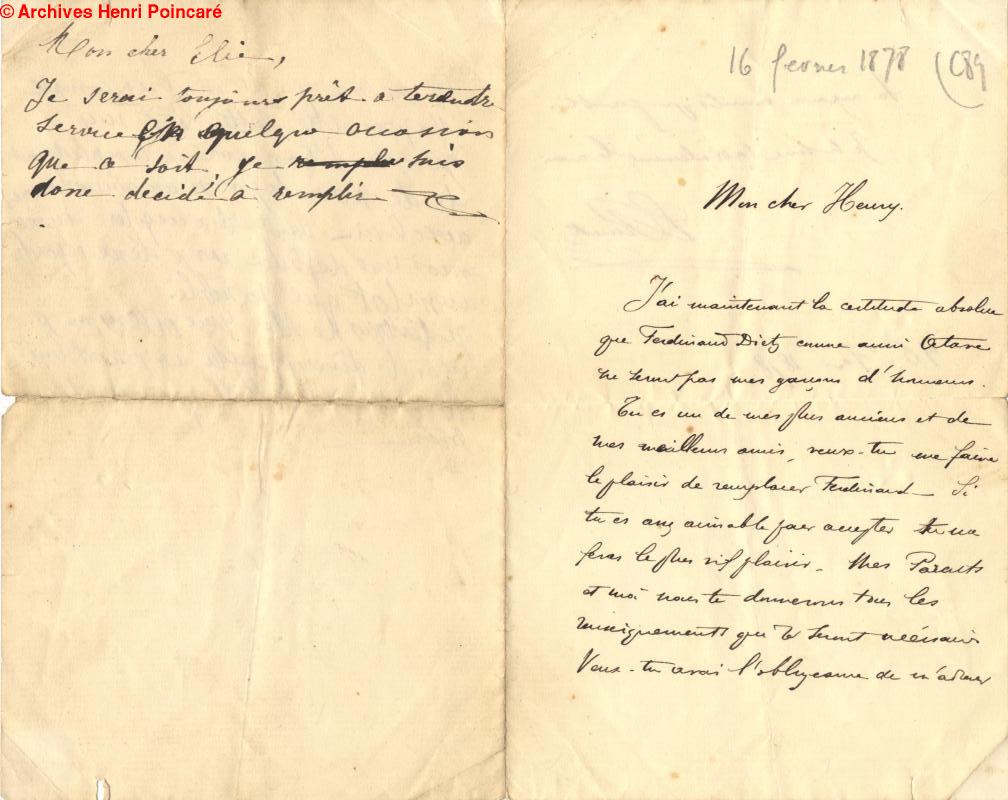 © Archives Henri Poincaré
Mon cher Elie,
Je serai toujours prêt a te rendre
service en quelque occasion
que ce soit, je suis
donc decidé à remplir
16 fevrier 1878 (C89)
Mon cher Henry.
J'ai maintenant la certitude absolue
que Ferdinand Dietz comme aussi Octave
ne seront pas mes garçons d'honneur.
Tu es un de mes plus anciens et de
mes meilleurs amis, veux-tu me faire
le plaisir de remplacer Ferdinand - Si
tu es assez aimable pour accepter tu me
feras le plus vif plaisir - Mes Parents
et moi nous te donnerons tous les
renseignements qui te seront nécessaires
Veux-tu avoir l'obligeance de m'adresser